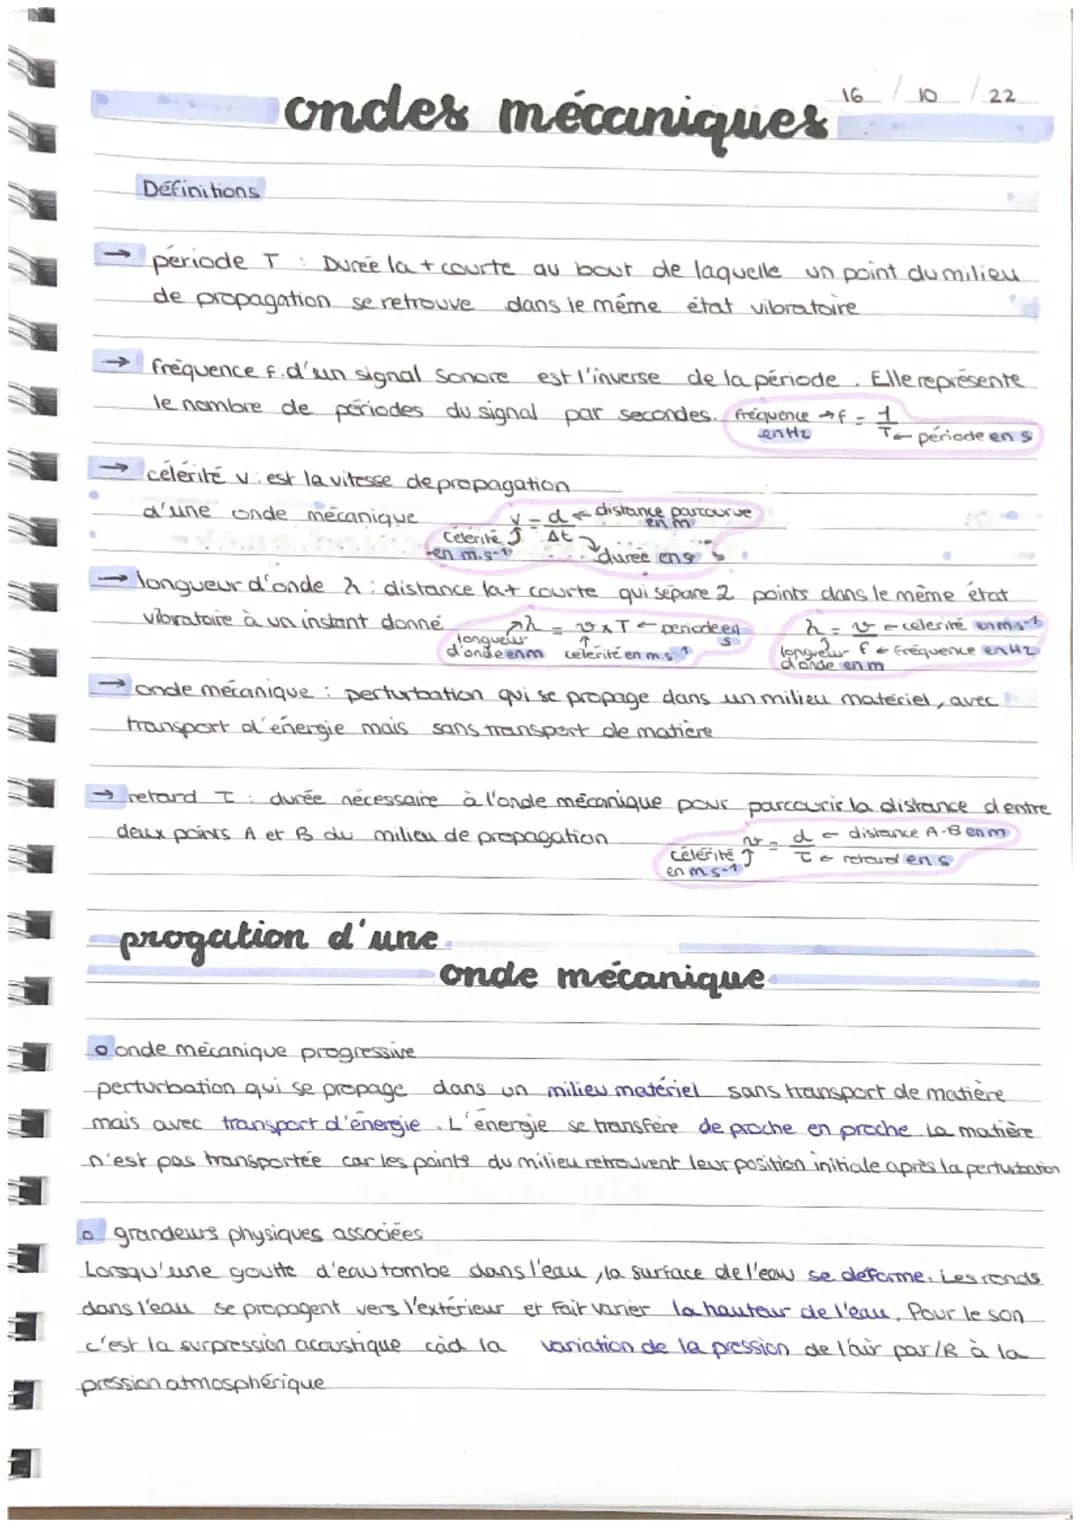 16 / 10 / 22
ondes mécaniques
Définitions
→ période T : Durée la + courte au bout de laquelle un point du milieu
de propagation se retrouve dans le même état vibratoire
→ fréquence f. d'un signal sonore est l'inverse de la période. Elle représente
le nombre de périodes du signal par secondes. fréquence → f = 1/T ← période en s
en Hz
→ célérité v : est la vitesse de propagation
d'une onde mécanique
v = d/Δt ← distance parcourue en m
célérité en m.s-1
durée en s
→ longueur d'onde λ : distance la + courte qui sépare 2 points dans le même état
vibratoire à un instant donné
λ = v x T ← periode en s
longueur d'onde en m célérité en m.s-1
λ = v/f ← celerité en m.s-1
longueur d'onde en m ← fréquence en Hz
→ onde mécanique : perturbation qui se propage dans un milieu matériel, avec
transport d'énergie mais sans transport de matière
→ retard τ : durée nécessaire à l'onde mécanique pour parcourir la distance d entre
deux points A et B du milieu de propagation
v = d/τ ← distance A-B en m
célérité en m.s-1 ← retard en s
progation d'une
onde mécanique
o onde mécanique progressive
perturbation qui se propage dans un milieu matériel sans transport de matière
mais avec transport d'énergie. L'énergie se transfère de proche en proche. La matière
n'est pas transportée car les points du milieu retrouvent leur position initiale après la perturbation
o grandeurs physiques associées
Lorsqu'une goutte d'eau tombe dans l'eau, la surface de l'eau se déforme. Les ronds
dans l'eau se propagent vers l'extérieur et fait varier la hauteur de l'eau. Pour le son
c'est la surpression acoustique càd la variation de la pression de l'air par/R à la
pression atmosphérique